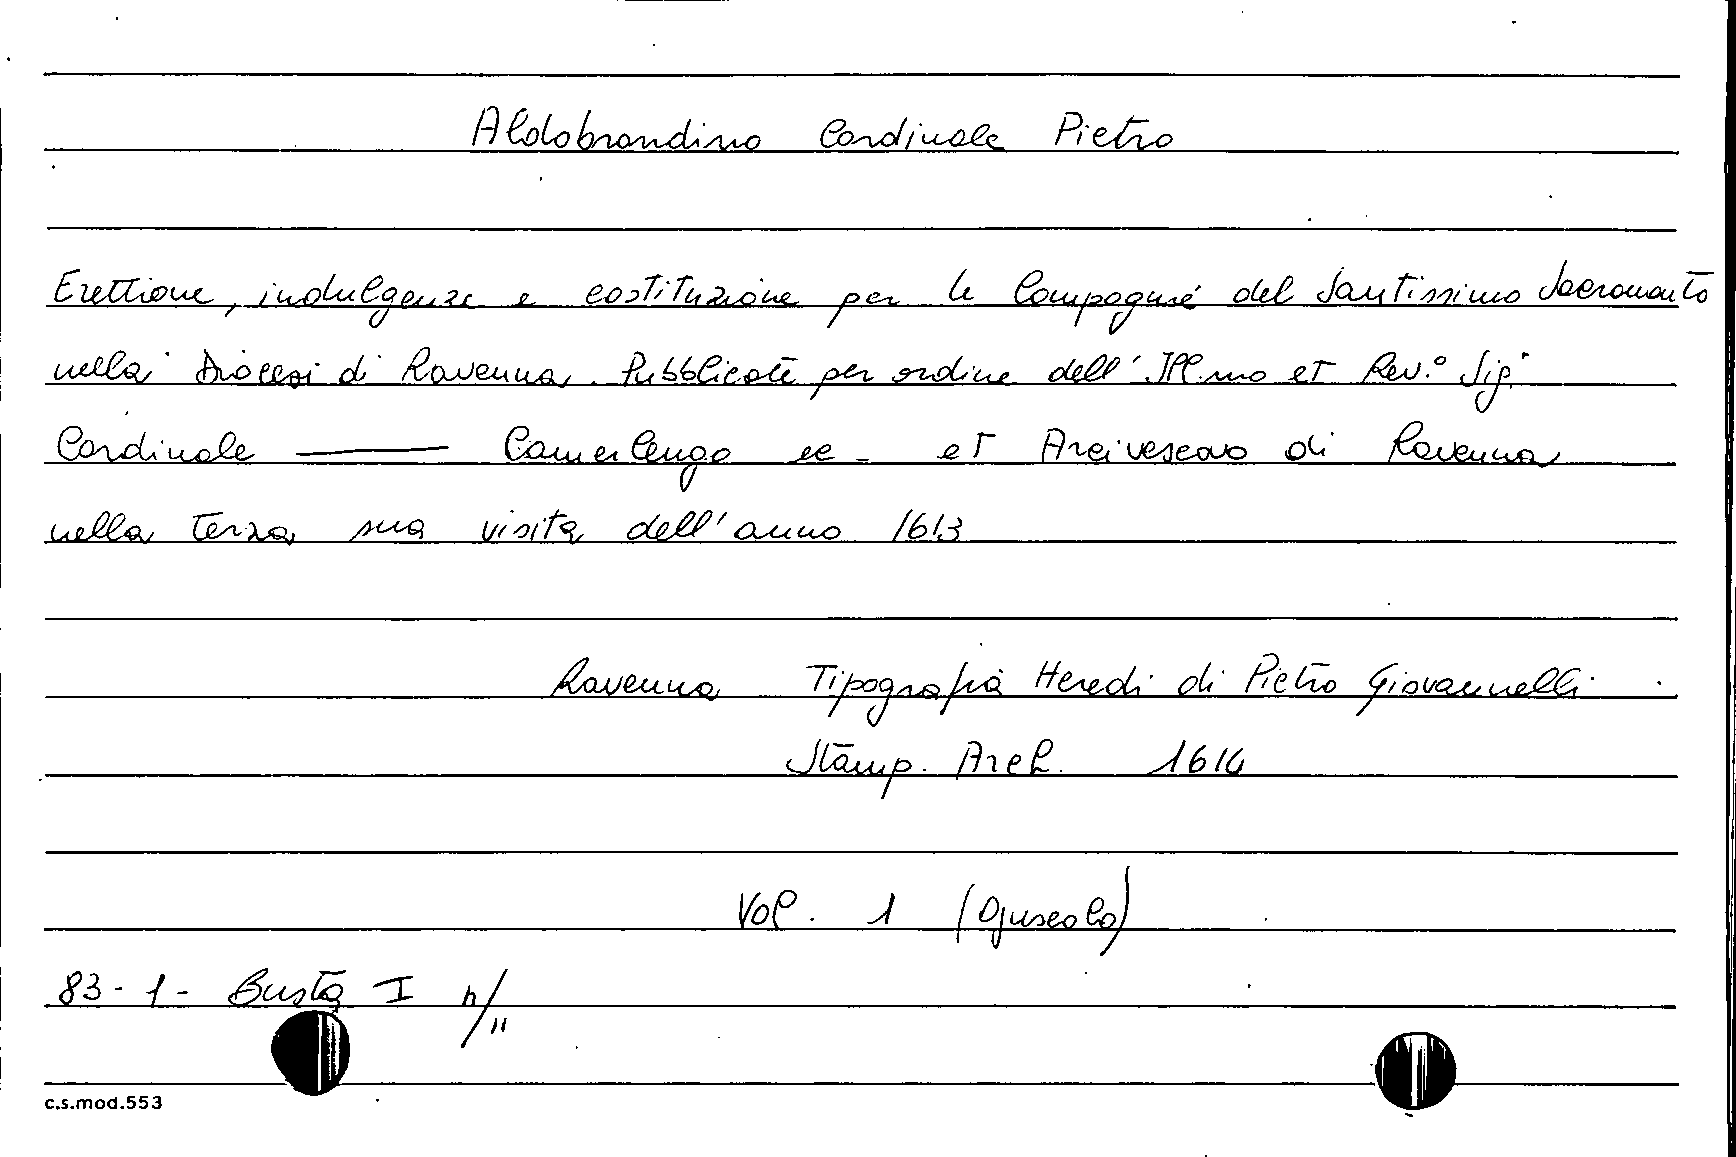 Aldobrandino Cardinale Pietro
Erettione, indulgenze e costituzione per le Compagnie del Santissimo Sacramento
nella Diocesi di Ravenna. Pubblicate per ordine dell' Ill.mo et Rev.o Sig.
Cardinale ——— Camerlengo ec - et Arcivescovo di Ravenna
nella terza sua visita dell'anno 1613
Ravenna Tipografia Heredi di Pietro Giovannelli
Stamp. Arch. 1614
Vol. 1 (Opuscolo)
83-1- Busta I n/"
c.s.mod.553